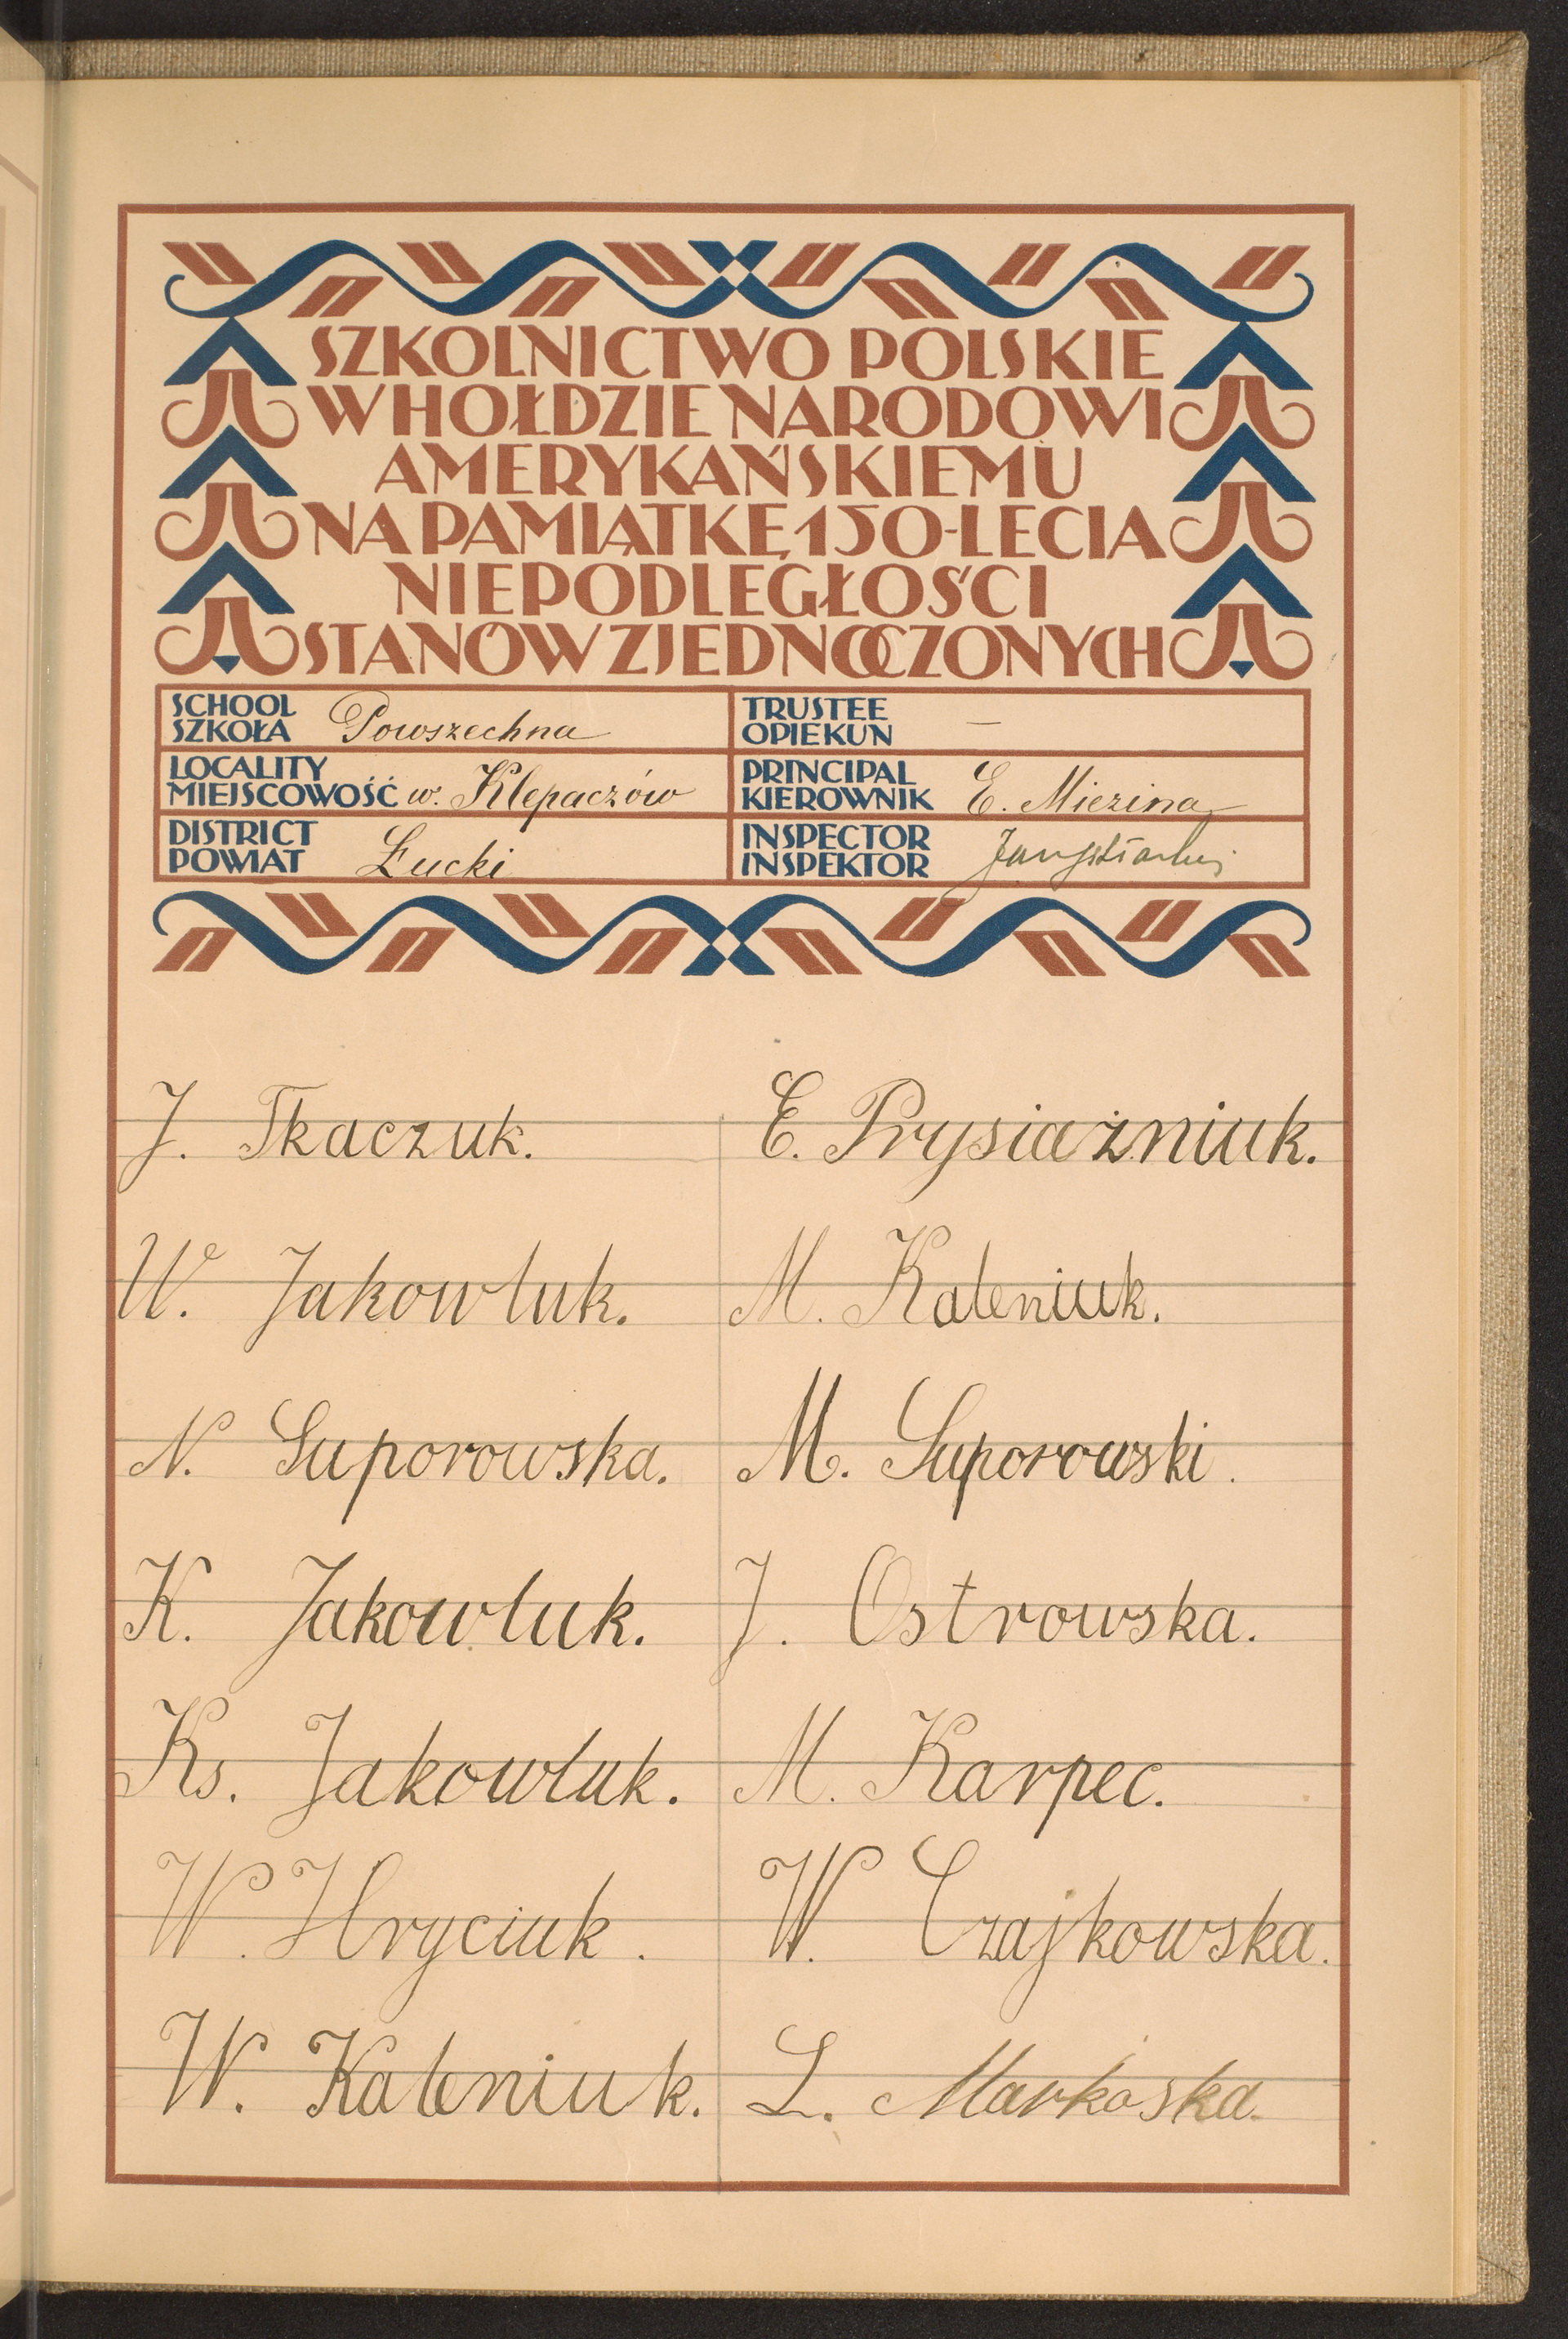 SZKOLNICTWO POLSKIE
W HOŁDZIE NARODOWI
AMERYKAŃSKIEMU
NA PAMIĄTKĘ 150-LECIA
NIEPODLEGŁOŚCI
STANÓW ZJEDNOCZONYCH
SCHOOL
SZKOŁA Powszechna
TRUSTEE
OPIEKUN —
LOCALITY
MIEJSCOWOŚĆ w. Klepaczów
PRINCIPAL
KIEROWNIK E. Miezina
DISTRICT
POWIAT Łucki
INSPECTOR
INSPEKTOR
J. Tkaczuk.
E. Prysiażniuk.
W. Jakowluk.
M. Kaleniuk.
N. Suporowska.
M. Suporowski.
K. Jakowluk.
J. Ostrowska.
Ks. Jakowluk.
M. Karpec.
W. Hryciuk.
W. Czajkowska.
W. Kaleniuk.
L. Markoska.